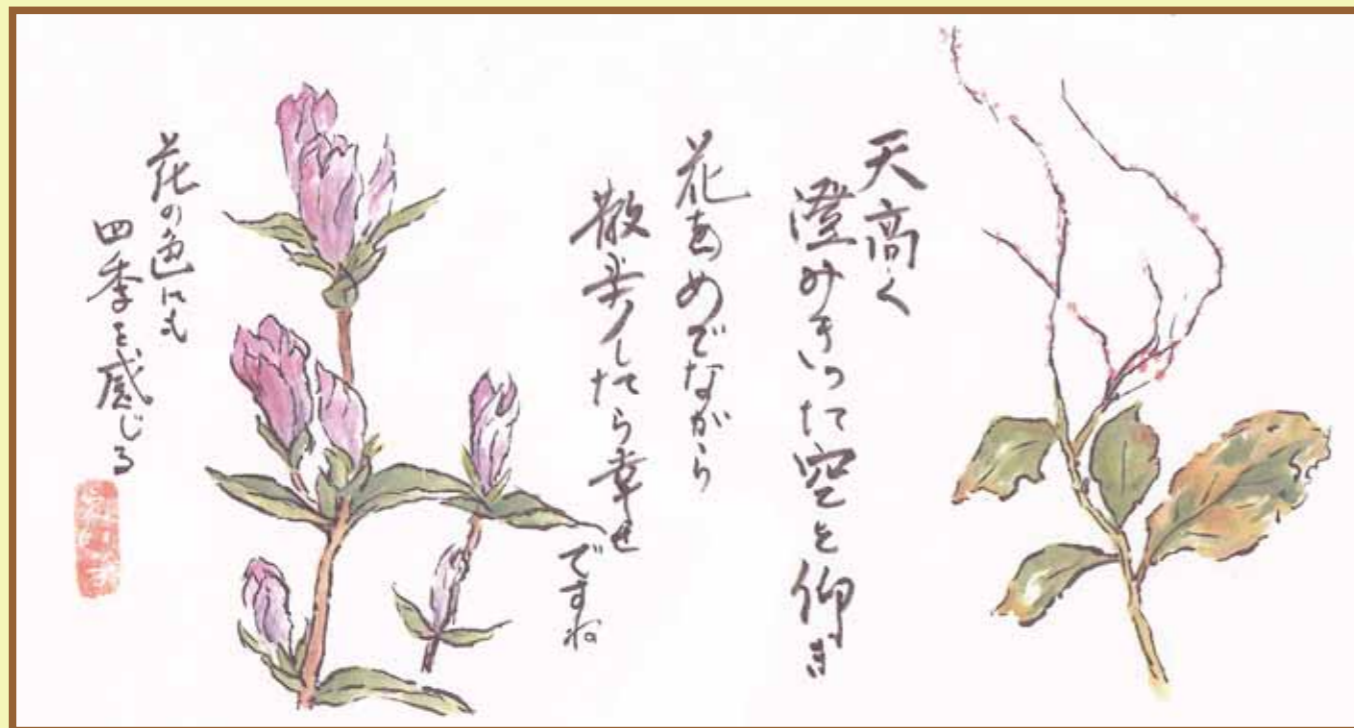 天高く
澄みきった空を仰ぎ
花をめでながら
散歩したら幸せ
ですね
花の色にも
四季を感じる